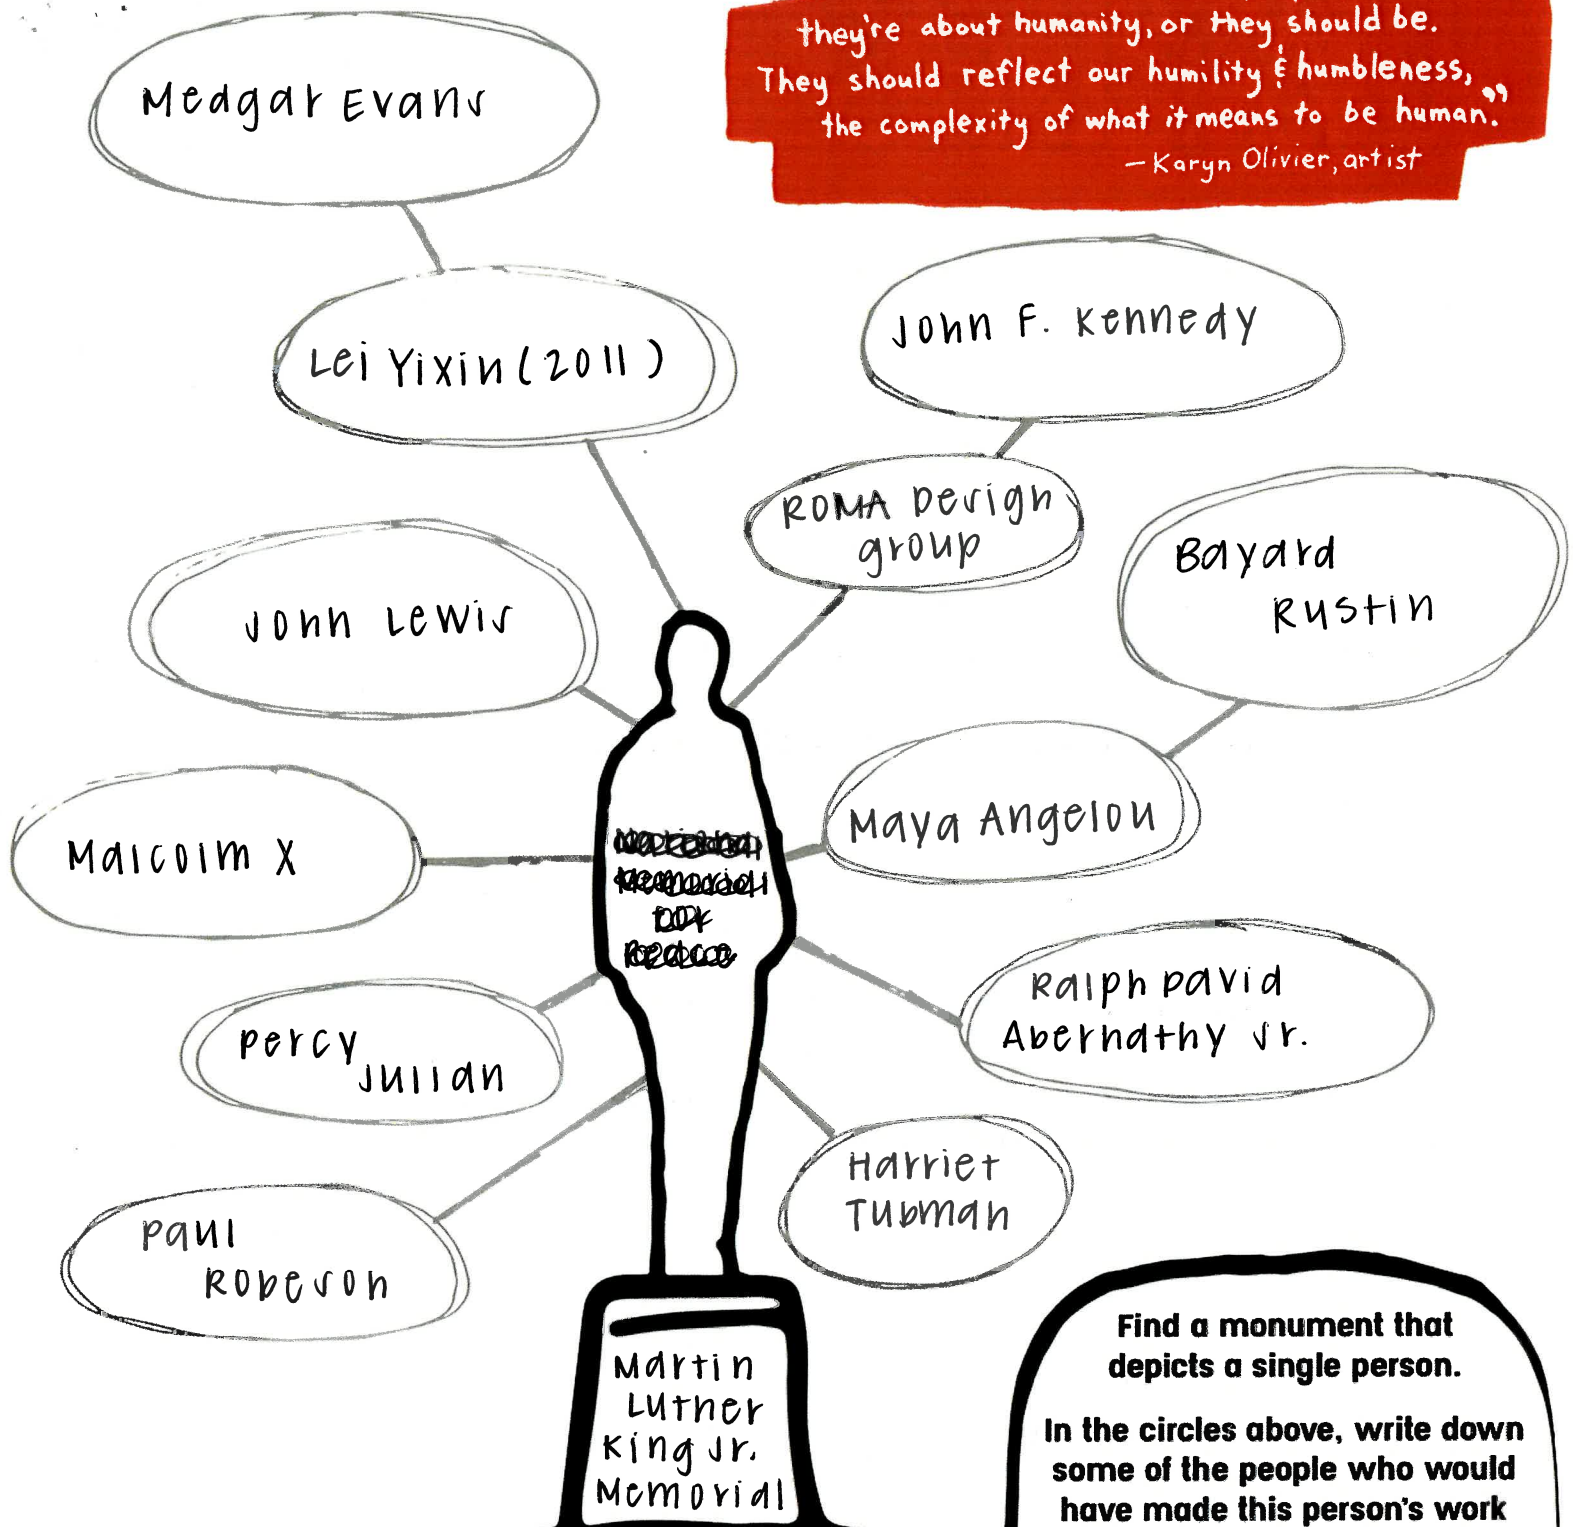 they're about humanity, or they should be.
They should reflect our humility & humbleness,
the complexity of what it means to be human."
— Karyn Olivier, artist
Medgar Evans
Lei Yixin (2011)
John F. Kennedy
ROMA Design
group
Bayard
Rustin
John Lewis
Malcolm X
Maya Angelou
Percy
Julian
Ralph David
Abernathy Jr.
Paul
Robeson
Harriet
Tubman
Martin
Luther
King Jr.
Memorial
Find a monument that
depicts a single person.
In the circles above, write down
some of the people who would
have made this person's work